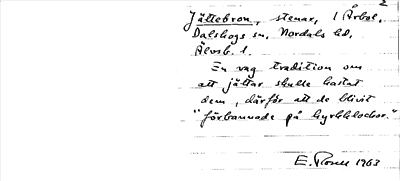 2
Jättebron, stenar, i Årbol,
Dalskogs sn, Nordals hd,
Älvsb. l.
En vag tradition om
att jättar skulle kastat
dem, därför att de blivit
"förbannade på kyrkklockor."
E. Rosell 1963